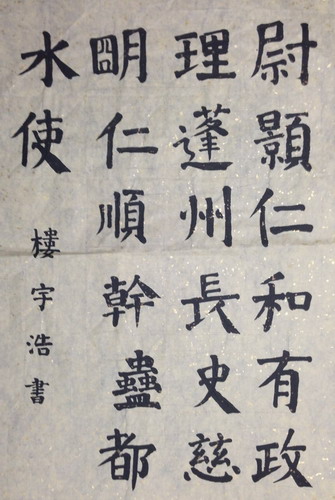 尉顥仁和有政
理蓬州長史慈
明仁順幹蠱都
水使
樓宇浩書